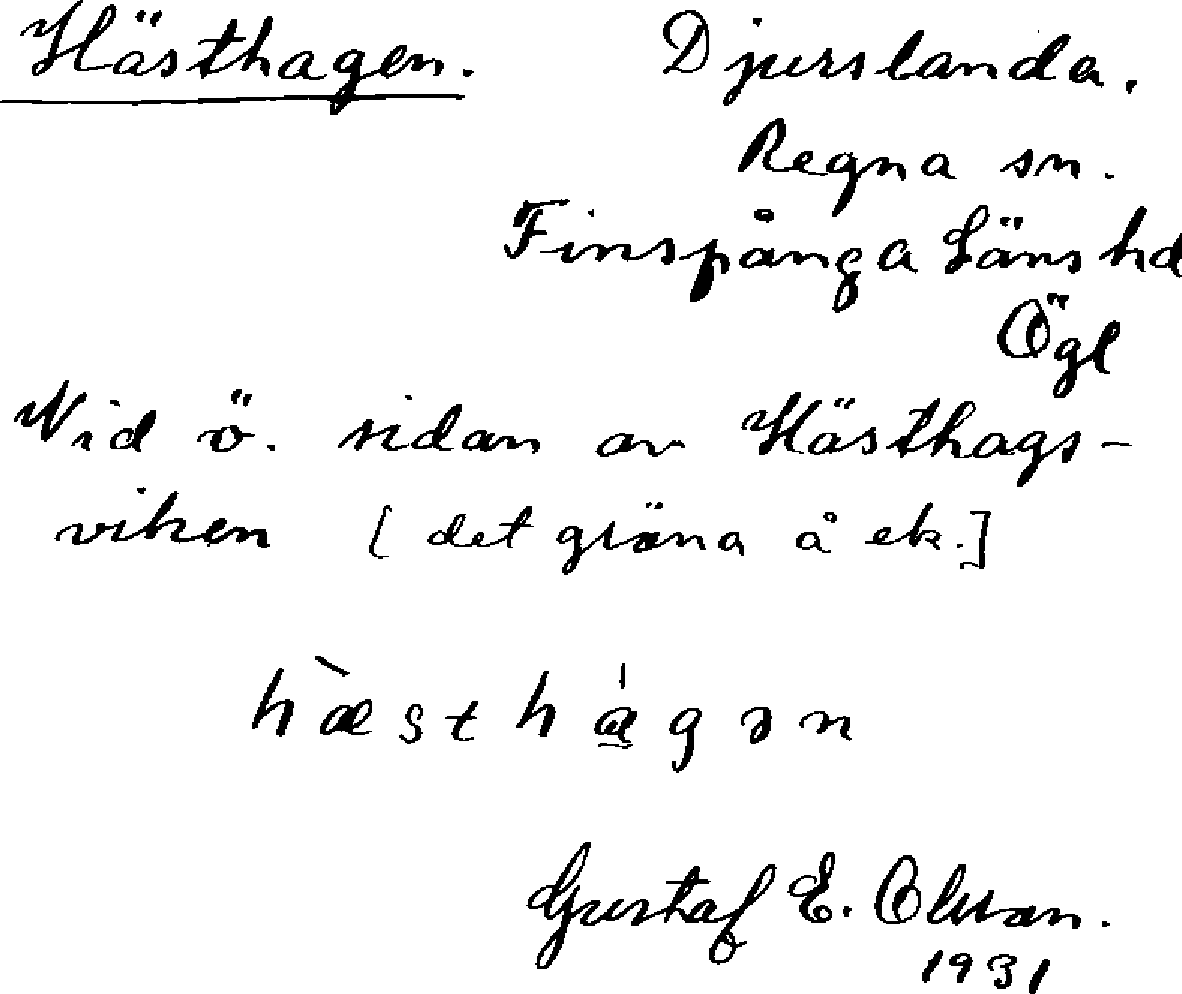 Hästhagen. Djurslanda.
Regna sn.
Finspånga Läns hd
Ögl
Vid ö. sidan av Hästhags-
viken [det gröna å ek.]
hæ̀sthágən
Gustaf E. Olsson.
1931